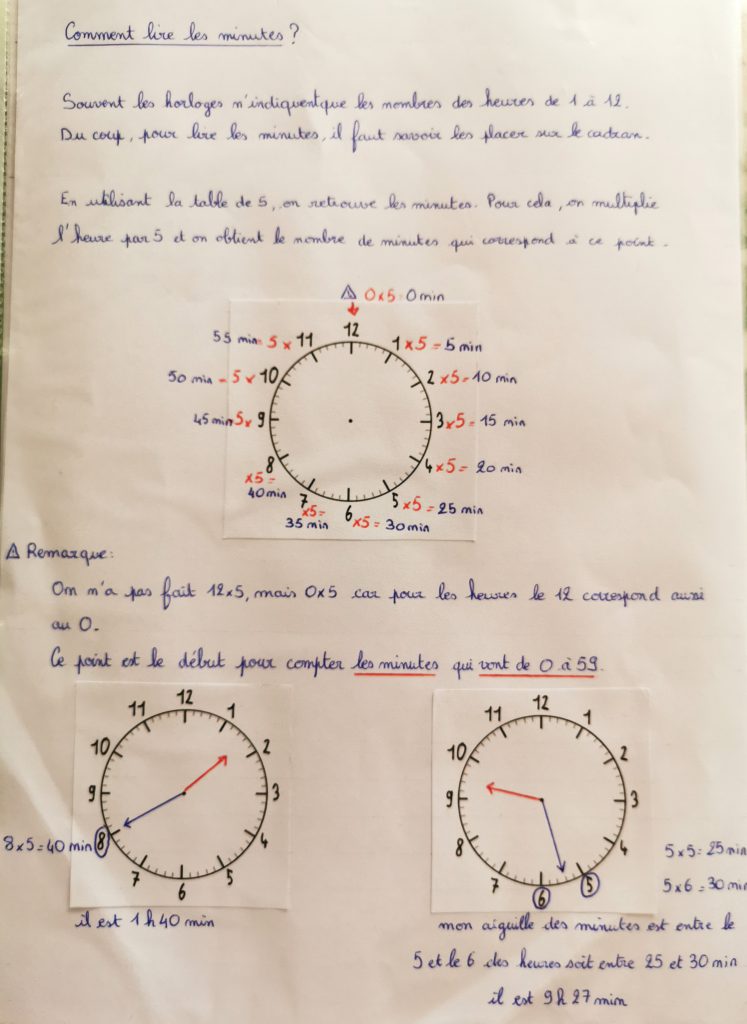 Comment lire les minutes ?
Souvent les horloges n'indiquent que les nombres des heures de 1 à 12.
Du coup, pour lire les minutes, il faut savoir les placer sur le cadran.
En utilisant la table de 5, on retrouve les minutes. Pour cela, on multiplie
l'heure par 5 et on obtient le nombre de minutes qui correspond à ce point.
⚠ 0x5 = 0 min
12
55 min = 5 x 11
1 x5 = 5 min
50 min = 5 x 10
2 x5 = 10 min
45 min 5x 9
3 x5 = 15 min
8 x5 = 40 min
4 x5 = 20 min
7 x5 = 35 min
6 x5 = 30 min
5 x5 = 25 min
⚠ Remarque :
On n'a pas fait 12x5, mais 0x5 car pour les heures le 12 correspond aussi
au 0.
Ce point est le début pour compter les minutes qui vont de 0 à 59.
12
11 1
10 2
9 3
8 4
7 5
6
8x5 = 40 min
il est 1 h 40 min
12
11 1
10 2
9 3
8 4
7 5
6
5x5 = 25 min
5x6 = 30 min
mon aiguille des minutes est entre le
5 et le 6 des heures soit entre 25 et 30 min
il est 9h 27 min